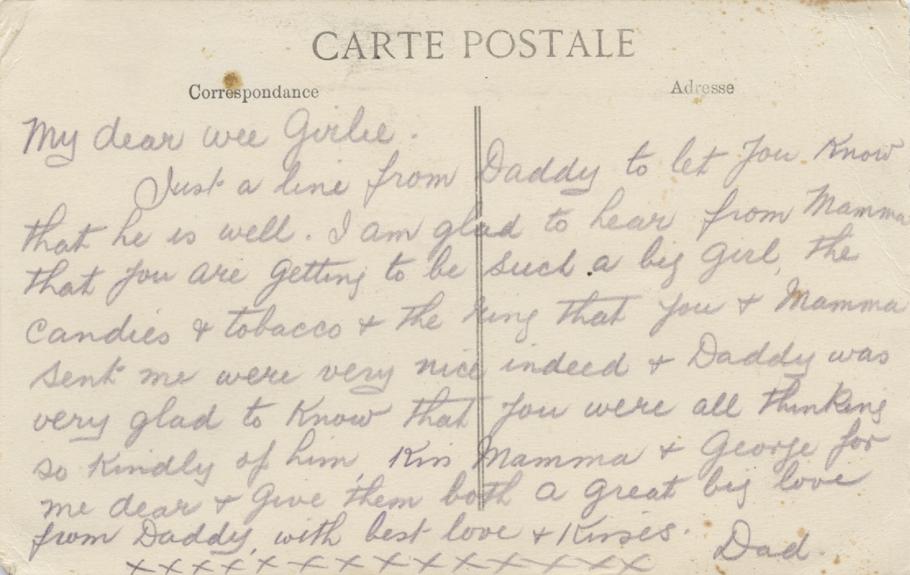 CARTE POSTALE
Correspondance
Adresse
My dear wee Girlie.
Just a line from Daddy to let you Know
that he is well. I am glad to hear from Mamma
that you are getting to be such a big girl, the
candies & tobacco & the ring that you & Mamma
sent me were very nice indeed & Daddy was
very glad to Know that you were all thinking
so Kindly of him, Kiss Mamma & George for
me dear & give them both a great big love
from Daddy, with best love & Kisses. Dad.
xxxxxxxxxxxxxxxx